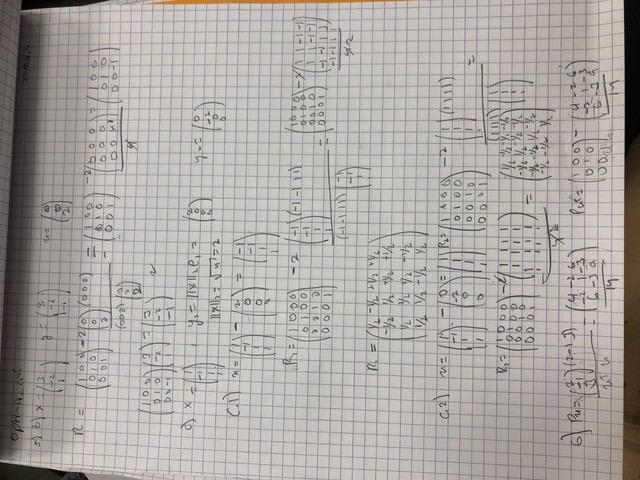 5) b) x = (3 -2 1) y = (3 -2 -1) u = (0 0 2)
R = (1 0 0 0 1 0 0 0 1) - 2 (0 0 2) (0 0 2) / (0 0 2) (0 0 2) = (1 0 0 0 1 0 0 0 1) - 2 (0 0 0 0 0 0 0 0 4) / 4 = (1 0 0 0 1 0 0 0 -1)
(1 0 0 0 1 0 0 0 -1) (3 -2 1) = (3 -2 -1)
c) x = (1 -1 1 1), y₁ = ||x||₂ e₁ = (2 0 0 0) y₂ = (0 -2 0 0)
||x||₂ = √4 = 2
c.1) u = (1 -1 1 1) - (2 0 0 0) = (-1 -1 1 1)
R₁ = (1 0 0 0 0 1 0 0 0 0 1 0 0 0 0 1) - 2 (-1 -1 1 1) (-1 -1 1 1) / (-1 -1 1 1) (-1 -1 1 1) = (1 0 0 0 0 1 0 0 0 0 1 0 0 0 0 1) - 2 (1 1 -1 -1 1 1 -1 -1 -1 -1 1 1 -1 -1 1 1) / 4 2
R₁ = (1/2 -1/2 +1/2 +1/2 -1/2 1/2 +1/2 +1/2 1/2 1/2 1/2 -1/2 1/2 1/2 -1/2 1/2)
c.2) u = (1 -1 1 1) - (0 -2 0 0) = (1 1 1 1) R₂ = (1 0 0 0 0 1 0 0 0 0 1 0 0 0 0 1) - 2 (1 1 1 1) (1 1 1 1) / (1 1 1 1) (1 1 1 1) =
R₂ = (1 0 0 0 0 1 0 0 0 0 1 0 0 0 0 1) - 2 (1 1 1 1 1 1 1 1 1 1 1 1 1 1 1 1) / 4 2 = (1/2 -1/2 -1/2 -1/2 -1/2 1/2 -1/2 -1/2 -1/2 -1/2 1/2 -1/2 -1/2 -1/2 -1/2 1/2)
6) Pu = (2 -1 3) (2 -1 3) / uᵀ u = (4 -2 6 -2 1 -3 6 -3 9) / 14 Pu⊥ = (1 0 0 0 1 0 0 0 1) - (4 -2 6 -2 1 -3 6 -3 9) / 14